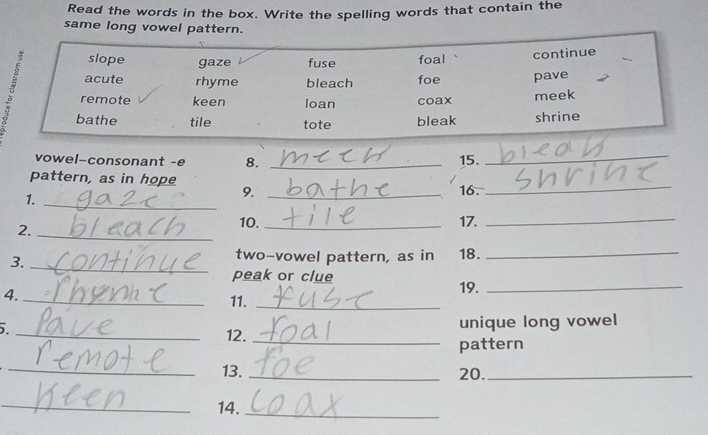 Read the words in the box. Write the spelling words that contain the
same long vowel pattern.
slope gaze fuse foal continue
acute rhyme bleach foe pave
remote keen loan coax meek
bathe tile tote bleak shrine
vowel-consonant -e
pattern, as in hope
1. gaze
2. bleach
3. continue
4. rhyme
5. Pave
remote
keen
8. meek
9. bathe
10. tile
two-vowel pattern, as in
peak or clue
11. fuse
12. foal
13. foe
14. coax
15. bleak
16. shrine
17.
18.
19.
unique long vowel
pattern
20.